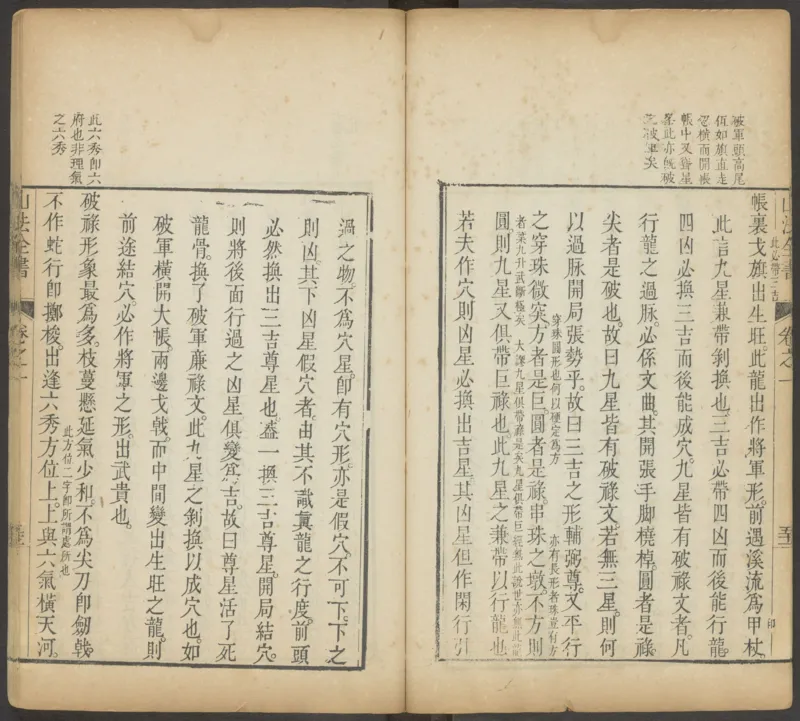 破軍頭高尾
帳中又聳星
帳裏戈旗出生旺此龍出作將軍形前遇溪流為甲杖
此必帶三吉
印
此言九星兼帶剝換也三吉必帶四凶而後能行龍
四凶必換三吉而後能成穴九星皆有破祿文者凡
行龍之過脉必係文曲其開張手脚橈棹圓者是祿
尖者是破也故曰九星皆有破祿文若無三星則何
以過脉開局張勢乎故曰三吉之形輔弼尊又平行
穿珠圓形也何以硬定為方
亦有長形者珠豈有方
之穿珠微突方者是巨圓者是祿串珠之墩不方則
圓則九星又俱帶巨祿也此九星之兼帶以行龍也
若夫作穴則凶星必換出吉星其凶星但作閑行引
過之物不為穴星即有穴形亦是假穴不可下下之
則凶其下凶星假穴者由其不識真龍之行度前頭
必然換出三吉尊星也蓋一換三吉尊星開局結穴
則將後面行過之凶星俱變為吉故曰尊星活了死
龍骨換了破軍廉祿文此九星之剝換以成穴也如
破軍橫開大帳兩邊戈戟而中間變出生旺之龍則
前途結穴必作將軍之形出武貴也
破祿形象最為多枝蔓懸延氣少和不為尖刀即劒戟
此方位二字即所謂處所也
不作蛇行即擲梭出逢六秀方位上上與六氣橫天河
山法全書
卷之一
此六秀即六
府也非理氣
之六秀